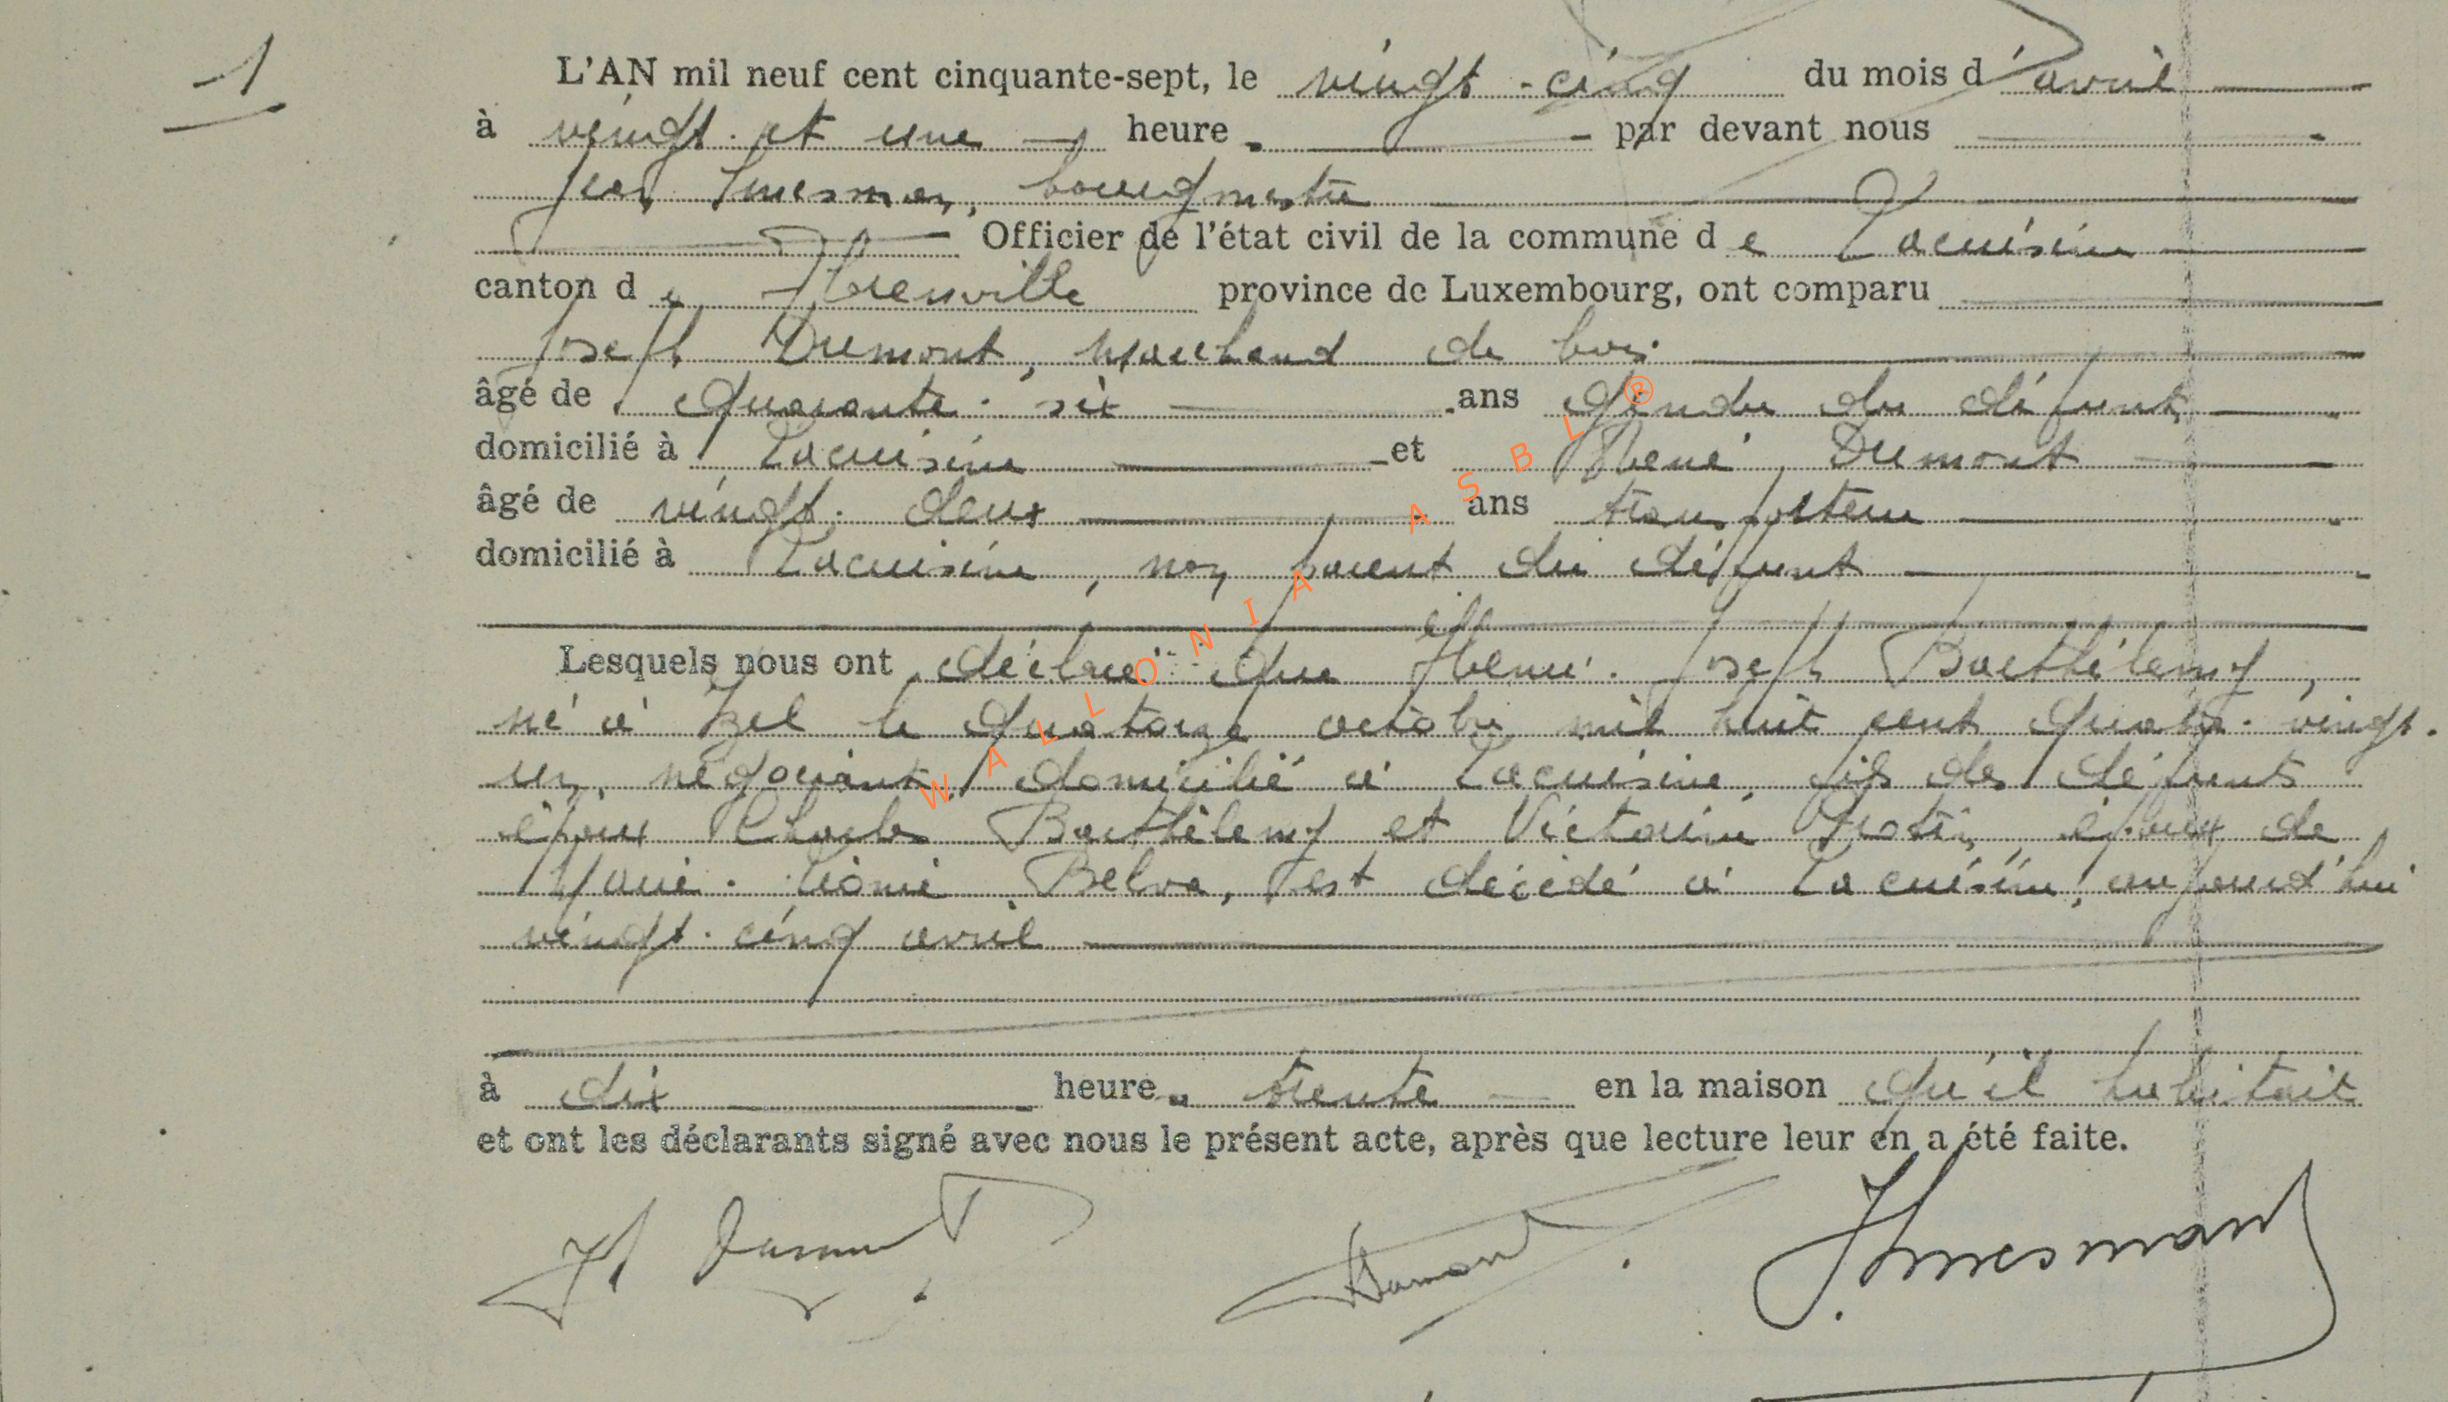 1
L'AN mil neuf cent cinquante-sept, le vingt-cinq du mois d'avril
à vingt et une heure par devant nous
Jean , bourgmestre
Officier de l'état civil de la commune de Lacuisine
canton de Florenville province de Luxembourg, ont comparu
Joseph Dumont, marchand de bois
âgé de quarante-six ans gendre du défunt
domicilié à Lacuisine et René Dumont
âgé de vingt-deux ans transporteur
domicilié à Lacuisine, non parent du défunt
Lesquels nous ont déclaré que Henri-Joseph Barthélemy,
né à Izel le quatorze octobre mil huit cent quatre-vingt-
un, négociant, domicilié à Lacuisine, fils des défunts
époux Charles Barthélemy et Victorine , époux de
Marie- Belva, est décédé à Lacuisine, aujourd'hui
vingt-cinq avril
à dix heure trente en la maison qu'il habitait
et ont les déclarants signé avec nous le présent acte, après que lecture leur en a été faite.
WALLONIA ASBL ®